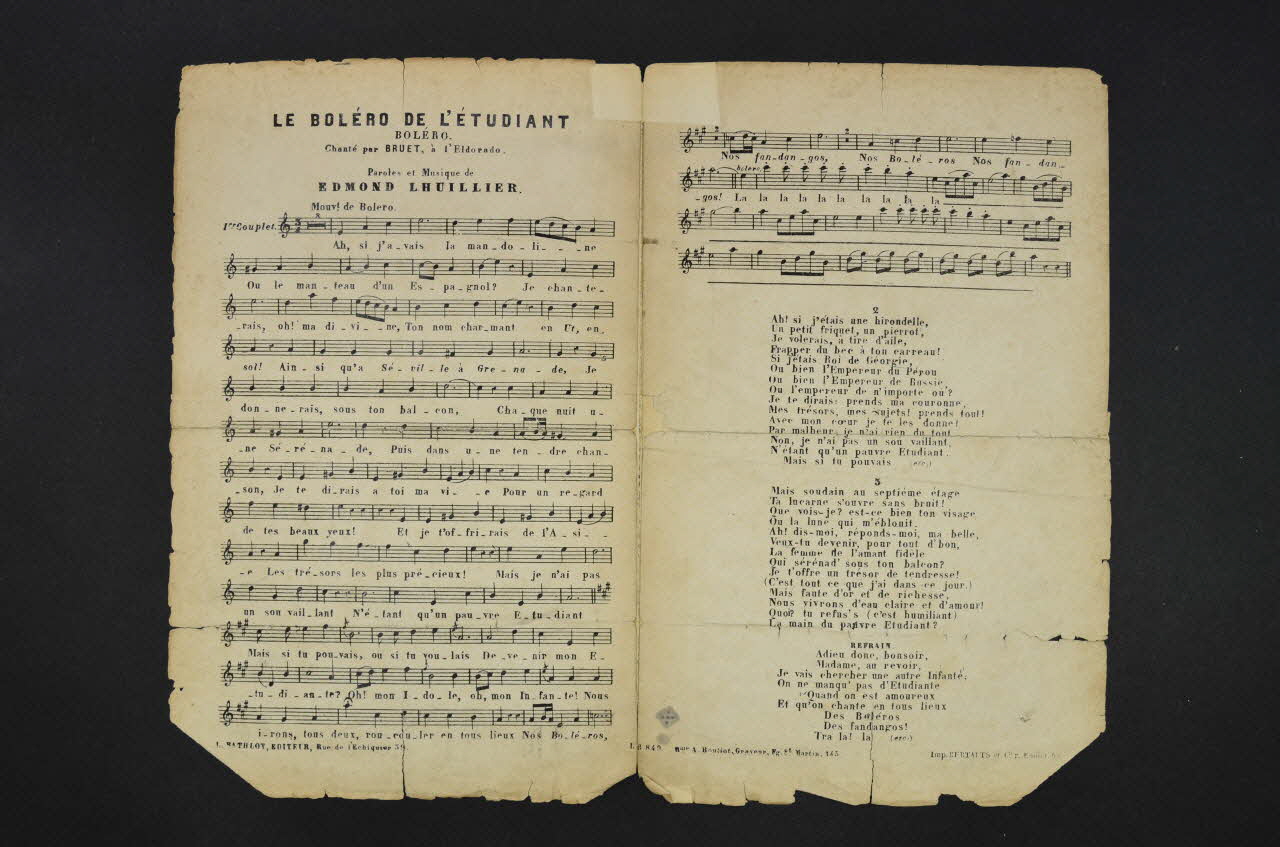 LE BOLÉRO DE L'ÉTUDIANT
BOLÉRO.
Chanté par BRUET, à l'Eldorado.
Paroles et Musique de
EDMOND LHUILLIER.
Mouvt de Bolero.
1er Couplet.
8
Ah, si j'a_vais la man_do_li_ _ne
Ou le man_teau d'un Es_pa_gnol? Je chan_te_
_rais, oh! ma di_vi_ _ne, Ton nom char_mant en Ut, en
sol! Ain_si qu'a Sé_vil_le à Gre_na_de, Je
don_ne_rais, sous ton bal_con, Cha_que nuit u_
_ne Sé_ré_na_de, Puis dans u_ne ten_dre chan_
_son, Je te di_rais a toi ma vi_e Pour un re_gard
de tes beaux yeux! Et je t'of_fri_rais de l'A_si_
_e Les tré_sors les plus pré_cieux! Mais je n'ai pas
un sou vail_lant N'é_tant qu'un pau_vre E_tu_diant
Mais si tu pou_vais, ou si tu vou_lais De_ve_nir mon E_
_tu_di_an_te? Oh! mon I_do_le, oh, mon In_fan_te! Nous
i_rons, tous deux, rou_cou_ler en tous lieux Nos Bo_lé_ros,
L. BATHLOT, EDITEUR, Rue de l'Echiquier 39.
2
2
Nos fan_dan_gos, Nos Bo_lé_ros Nos fan_dan_
bolero.
_gos! La la la la la la la la la
2
Ah! si j'étais une hirondelle,
Un petit friquet, un pierrot,
Je volerais, a tire d'aile,
Frapper du bec à ton carreau!
Si j'étais Roi de Géorgie,
Ou bien l'Empereur du Pérou
Ou bien l'Empereur de Russie,
Ou l'empereur de n'importe où?
Je te dirais: prends ma couronne,
Mes trésors, mes sujets! prends tout!
Avec mon cœur je te les donne!
Par malheur, je n'ai rien du tout
Non, je n'ai pas un sou vaillant,
N'étant qu'un pauvre Etudiant.
Mais si tu pouvais (etc.)
3
Mais soudain au septième étage
Ta lucarne s'ouvre sans bruit!
Que vois-je? est-ce bien ton visage
Ou la lune qui m'éblouit.
Ah! dis-moi, réponds-moi, ma belle,
Veux-tu devenir, pour tout d'bon,
La femme de l'amant fidèle
Qui sérénad' sous ton balcon?
Je t'offre un trésor de tendresse!
(C'est tout ce que j'ai dans ce jour.)
Mais faute d'or et de richesse,
Nous vivrons d'eau claire et d'amour!
Quoi? tu refus's (c'est humiliant)
La main du pauvre Etudiant?
REFRAIN
Adieu donc, bonsoir,
Madame, au revoir,
Je vais chercher une autre Infante;
On ne manqu' pas d'Etudiante
Quand on est amoureux
Et qu'on chante en tous lieux
Des Boléros
Des fandangos!
Tra la! la (etc.)
L.B 849. Mme A. Bouziot, Graveur, Fg. St. Martin, 145
Imp. BERTAUTS et Cie r.